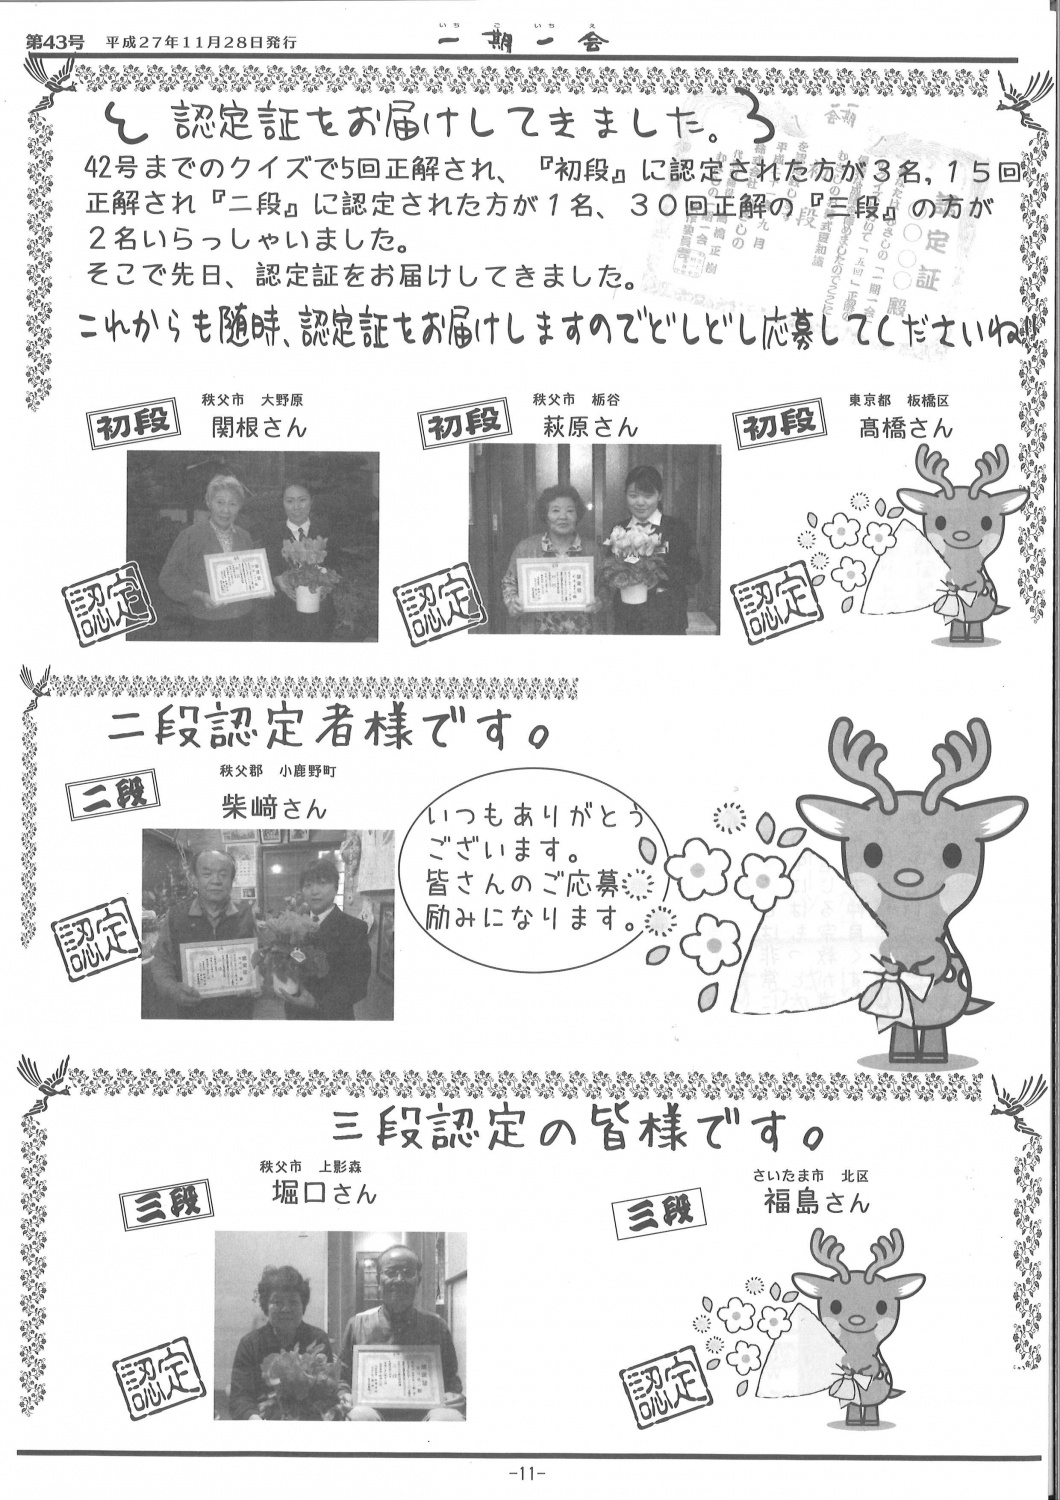 第43号 平成27年11月28日発行
いちごいちえ
一期一会
認定証をお届けしてきました。
42号までのクイズで5回正解され、『初段』に認定された方が3名,15回
正解され『二段』に認定された方が1名、30回正解の『三段』の方が
2名いらっしゃいました。
そこで先日、認定証をお届けしてきました。
これからも随時、認定証をお届けしますのでどしどし応募してくださいね!!
初段
秩父市 大野原
関根さん
認定
初段
秩父市 栃谷
萩原さん
認定
初段
東京都 板橋区
髙橋さん
認定
二段認定者様です。
二段
秩父郡 小鹿野町
柴﨑さん
認定
いつもありがとう
ございます。
皆さんのご応募
励みになります。
三段認定の皆様です。
三段
秩父市 上影森
堀口さん
認定
三段
さいたま市 北区
福島さん
認定
-11-